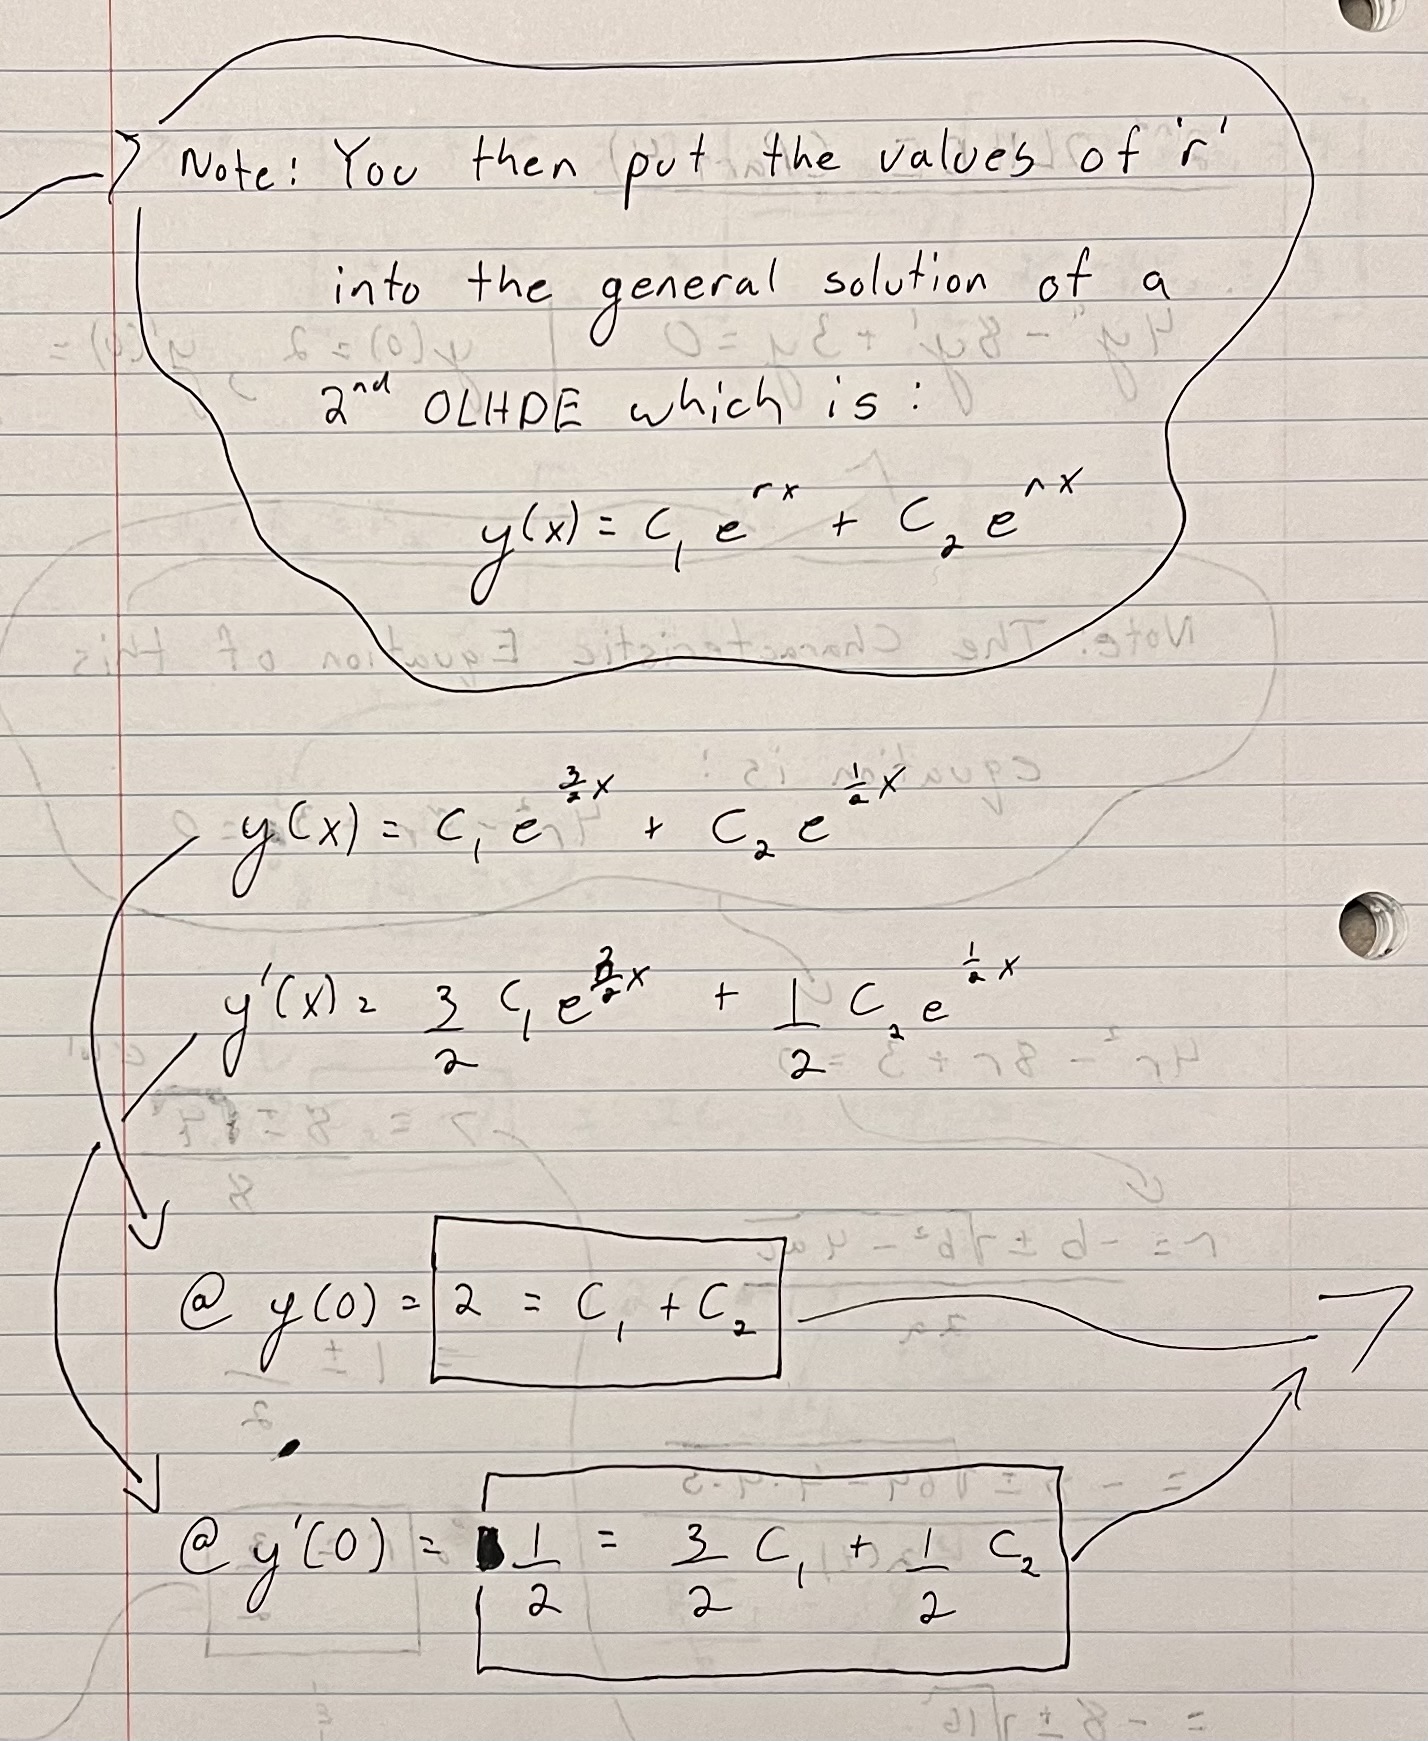 Note: You then put the values of 'r'
into the general solution of a
2nd OLHDE which is:
y(x) = C₁ e^{rx} + C₂ e^{rx}
y(x) = C₁ e^{3/2 x} + C₂ e^{1/2 x}
y'(x) = 3/2 C₁ e^{3/2 x} + 1/2 C₂ e^{1/2 x}
@ y(0) = 2 = C₁ + C₂
@ y'(0) = 1/2 = 3/2 C₁ + 1/2 C₂